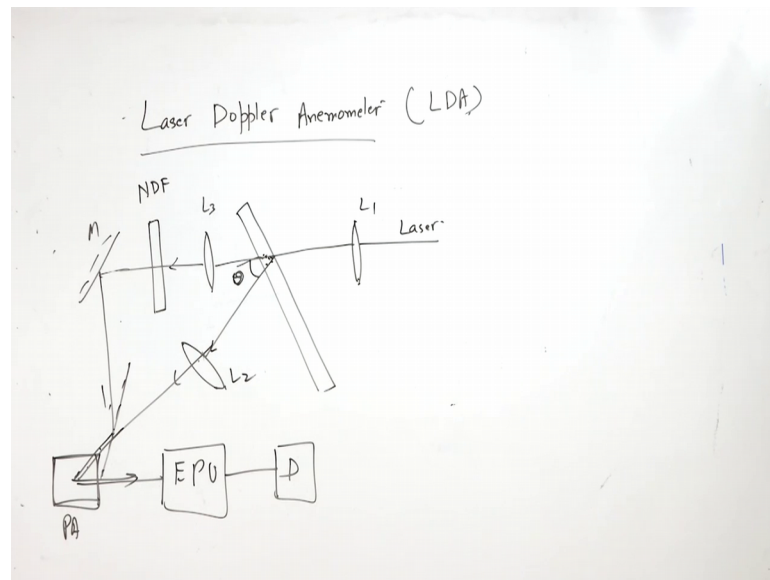 Laser Doppler Anemometer (LDA)
NDF
L3
L1
M
Laser
θ
L2
EPU
D
PA